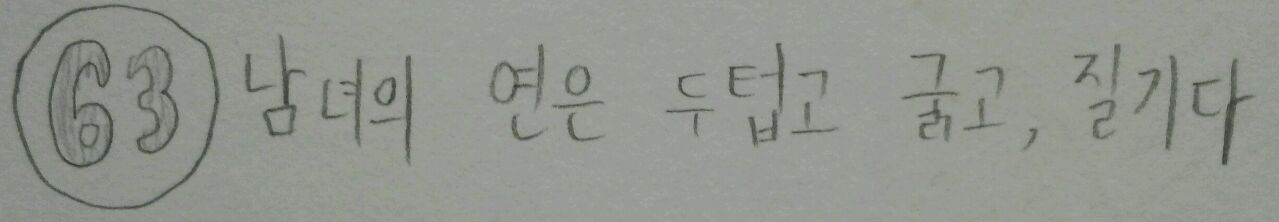 63 남녀의 연은 두텁고 굵고, 질기다